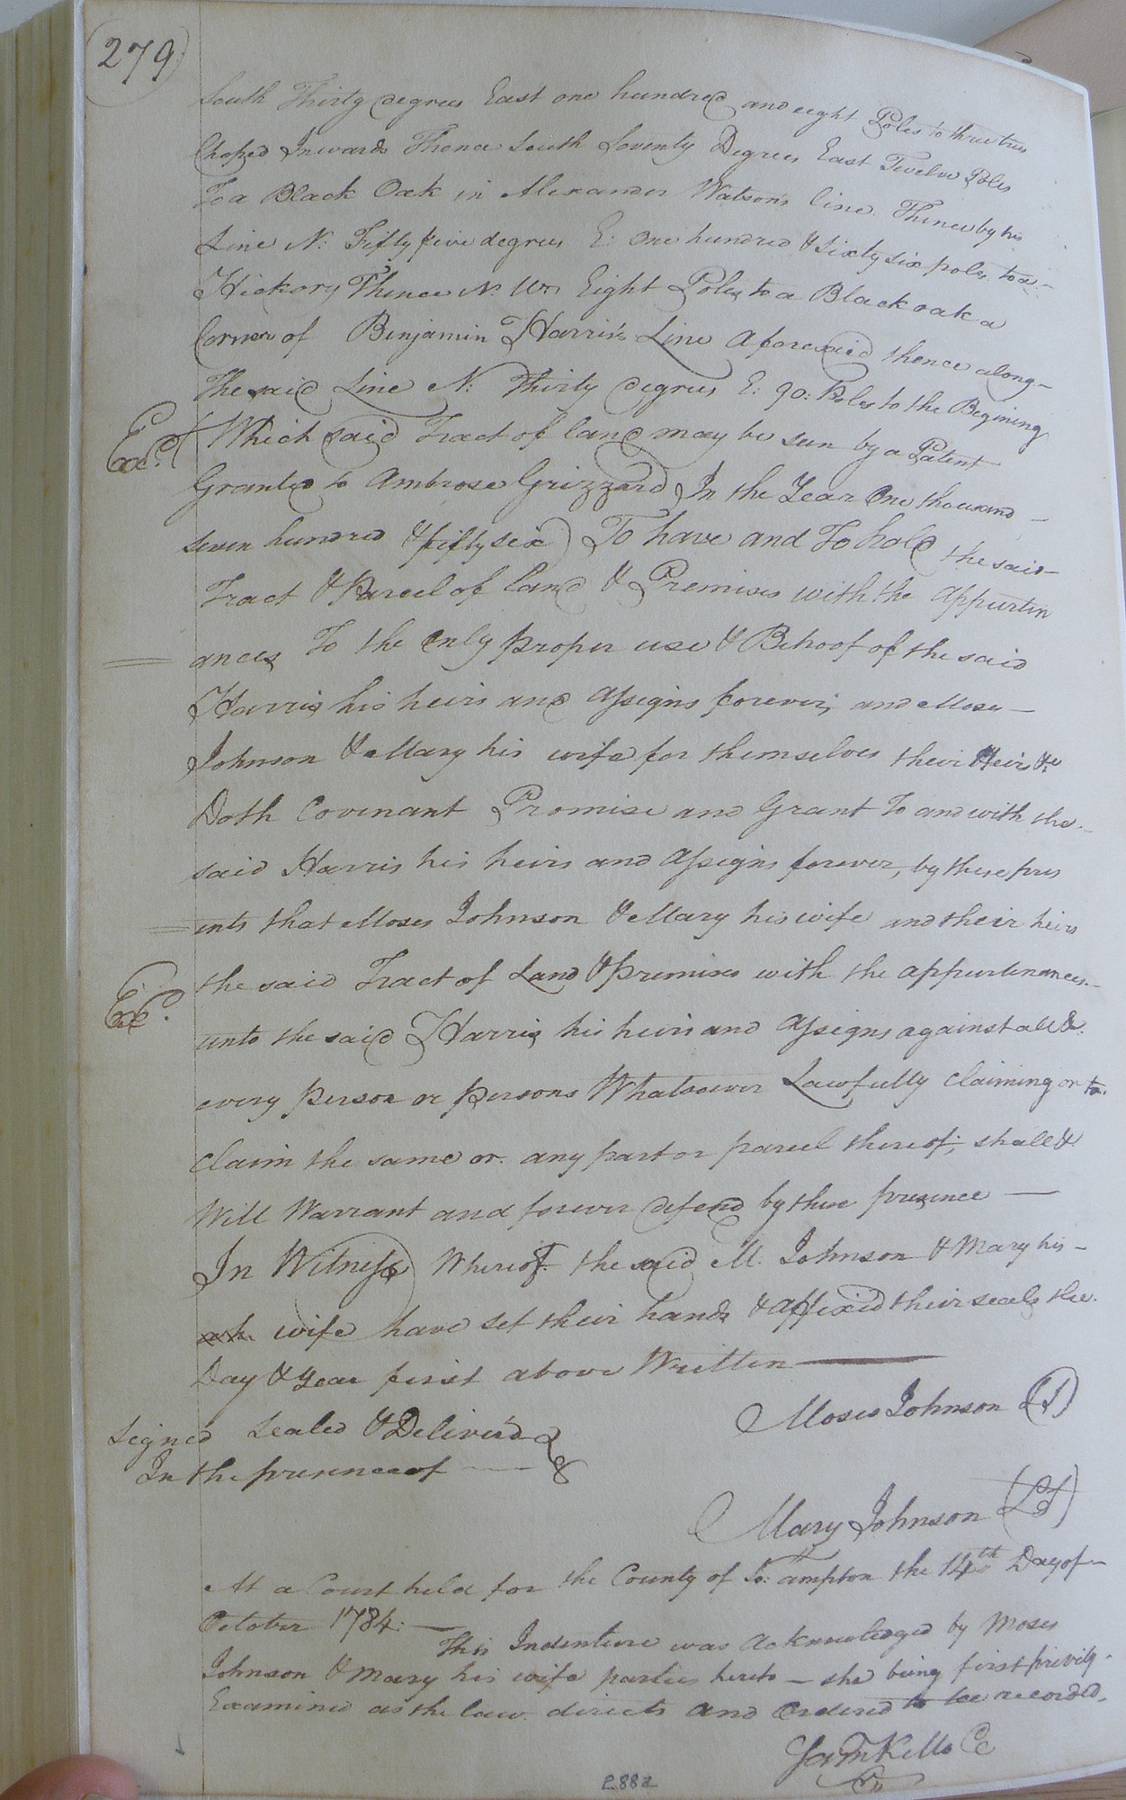 279
South Thirty degrees East one hundred and eight Poles to three trees
Choped Inwards Thence South Seventy Degrees East Twelve Poles
To a Black Oak in Alexander Watson's line. Thence by his
Line N: Fifty five degrees E: One hundred & sixty six poles to a
Hickory Thence N. Wt Eight Poles to a Black oak a
Corner of Benjamin Harris's Line aforesaid thence along
The said Line N: Thirty degrees E: 90: Poles to the Begining
Exd. (Which said Tract of land may be seen by a Patent
Granted to Ambrose Grizzard In the Year One thousand
seven hundred & fifty six) To have and To hold the said
Tract & Parcel of Land & Premises with the appurtin
ances To the only proper use & Behoof of the said
Harris his heirs and assigns forever; and Moses
Johnson & Mary his wife for themselves their Heirs &c
Doth Covenant Promise and Grant To and with the
said Harris his heirs and assigns forever, by these pres
ents that Moses Johnson & Mary his wife and their heirs
the said Tract of Land & premises with the appurtenances
Exd.
unto the said Harris his heirs and assigns against all &
every person or persons Whatsoever Lawfully claiming or to
claim the same or any part or parcel thereof; shall &
Will Warrant and forever defend by these presence
In Witness Whereof. the said M. Johnson & Mary his
wife have set their hands & affixed their seals the
Day & Year first above Written
Signed Sealed & Deliver'd
In the presence of
Moses Johnson (LS)
Mary Johnson (LS)
At a Court held for the County of So:ampton the 14th Day of
October 1784:
This Indenture was acknowledged by Moses
Johnson & Mary his wife parties hereto - she being first privily
Examined as the law directs and Ordered to be recorded.
Kello CC